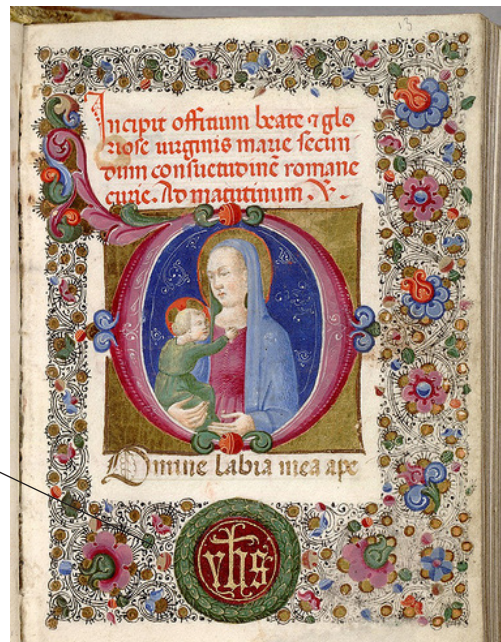 13
Incipit offitium beate ⁊ glo
riose uirginis marie secun
dum consuetudinē romane
curie. Ad matutinum V.
Domine labia mea ape
yhs